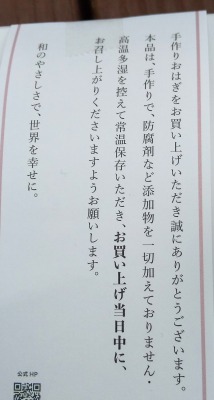 手作りおはぎをお買い上げいただき誠にありがとうございます。
本品は、手作りで、防腐剤など添加物を一切加えておりません・
高温多湿を控えて常温保存いただき、お買い上げ当日中に、
お召し上がりくださいますようお願いします。
和のやさしさで、世界を幸せに。
公式HP